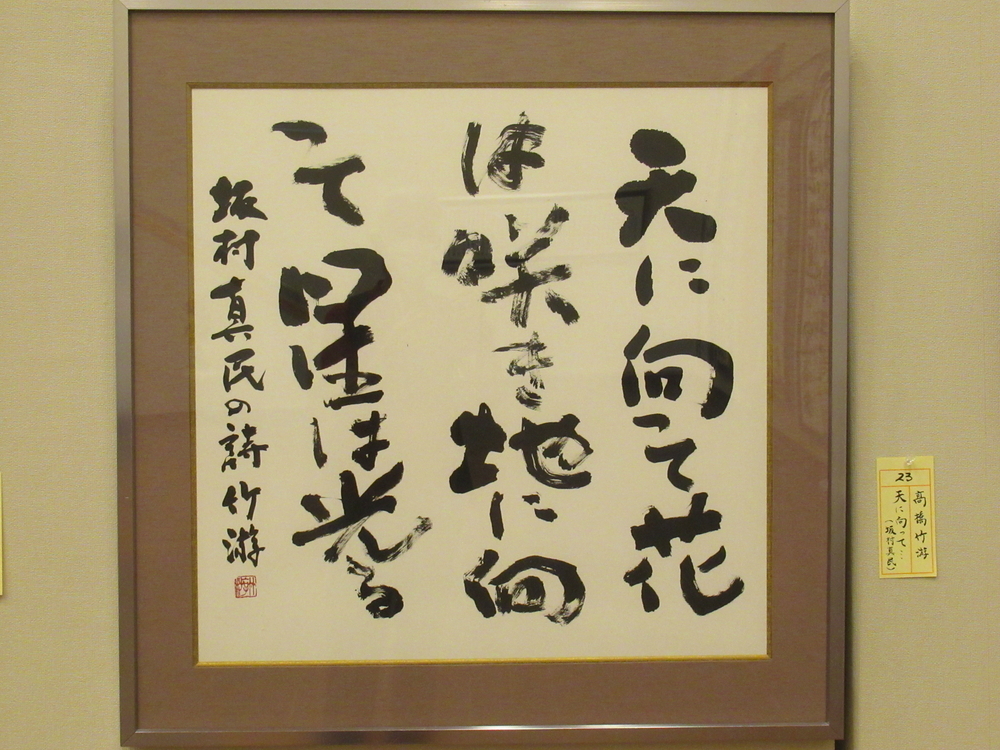 天に向って花
は咲き地に向
って星は光る
坂村真民の詩竹游
23
高橋竹游
天に向って…
(坂村真民)